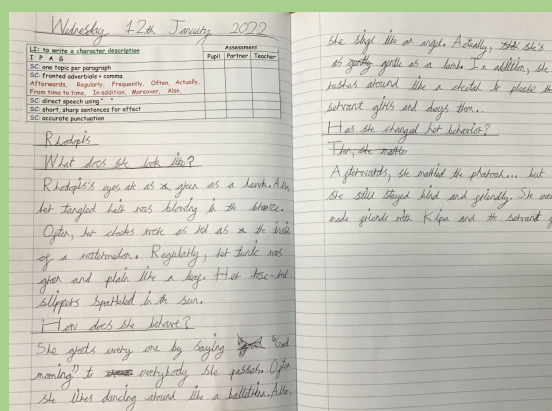 Wednesday 12th January 2022
LI: to write a character description
I P A G
Assessment
Pupil Partner Teacher
SC: one topic per paragraph
SC: fronted adverbials + comma
Afterwards, Regularly, Frequently, Often, Actually,
From time to time, In addition, Moreover, Also,
SC: direct speech using " "
SC: short, sharp sentences for effect
SC: accurate punctuation
Rhodopis
What does she look like?
Rhodopis's eyes are as green as a Also,
her tangled hair was blowing in the breeze.
Often, her cheeks were as red as the inside
of a watermelon. Regularly, her tunic was
green and plain like a leaf. Her rose-red
slippers sparkled in the sun.
How does she behave?
She greets every one by saying "Good
morning" to everybody she passes. Often
she likes dancing around like a ballerina. Also,
she sings like an angel. Actually, she's
as gentle as a lamb. In addition, she
rushes around like a cheetah to please the
servant girls and obeys them..
Has she changed her behavior?
Then, she
Afterwards, she married the pharaoh... but
she still stayed kind and friendly. She even
made friends with Kipa and the servant